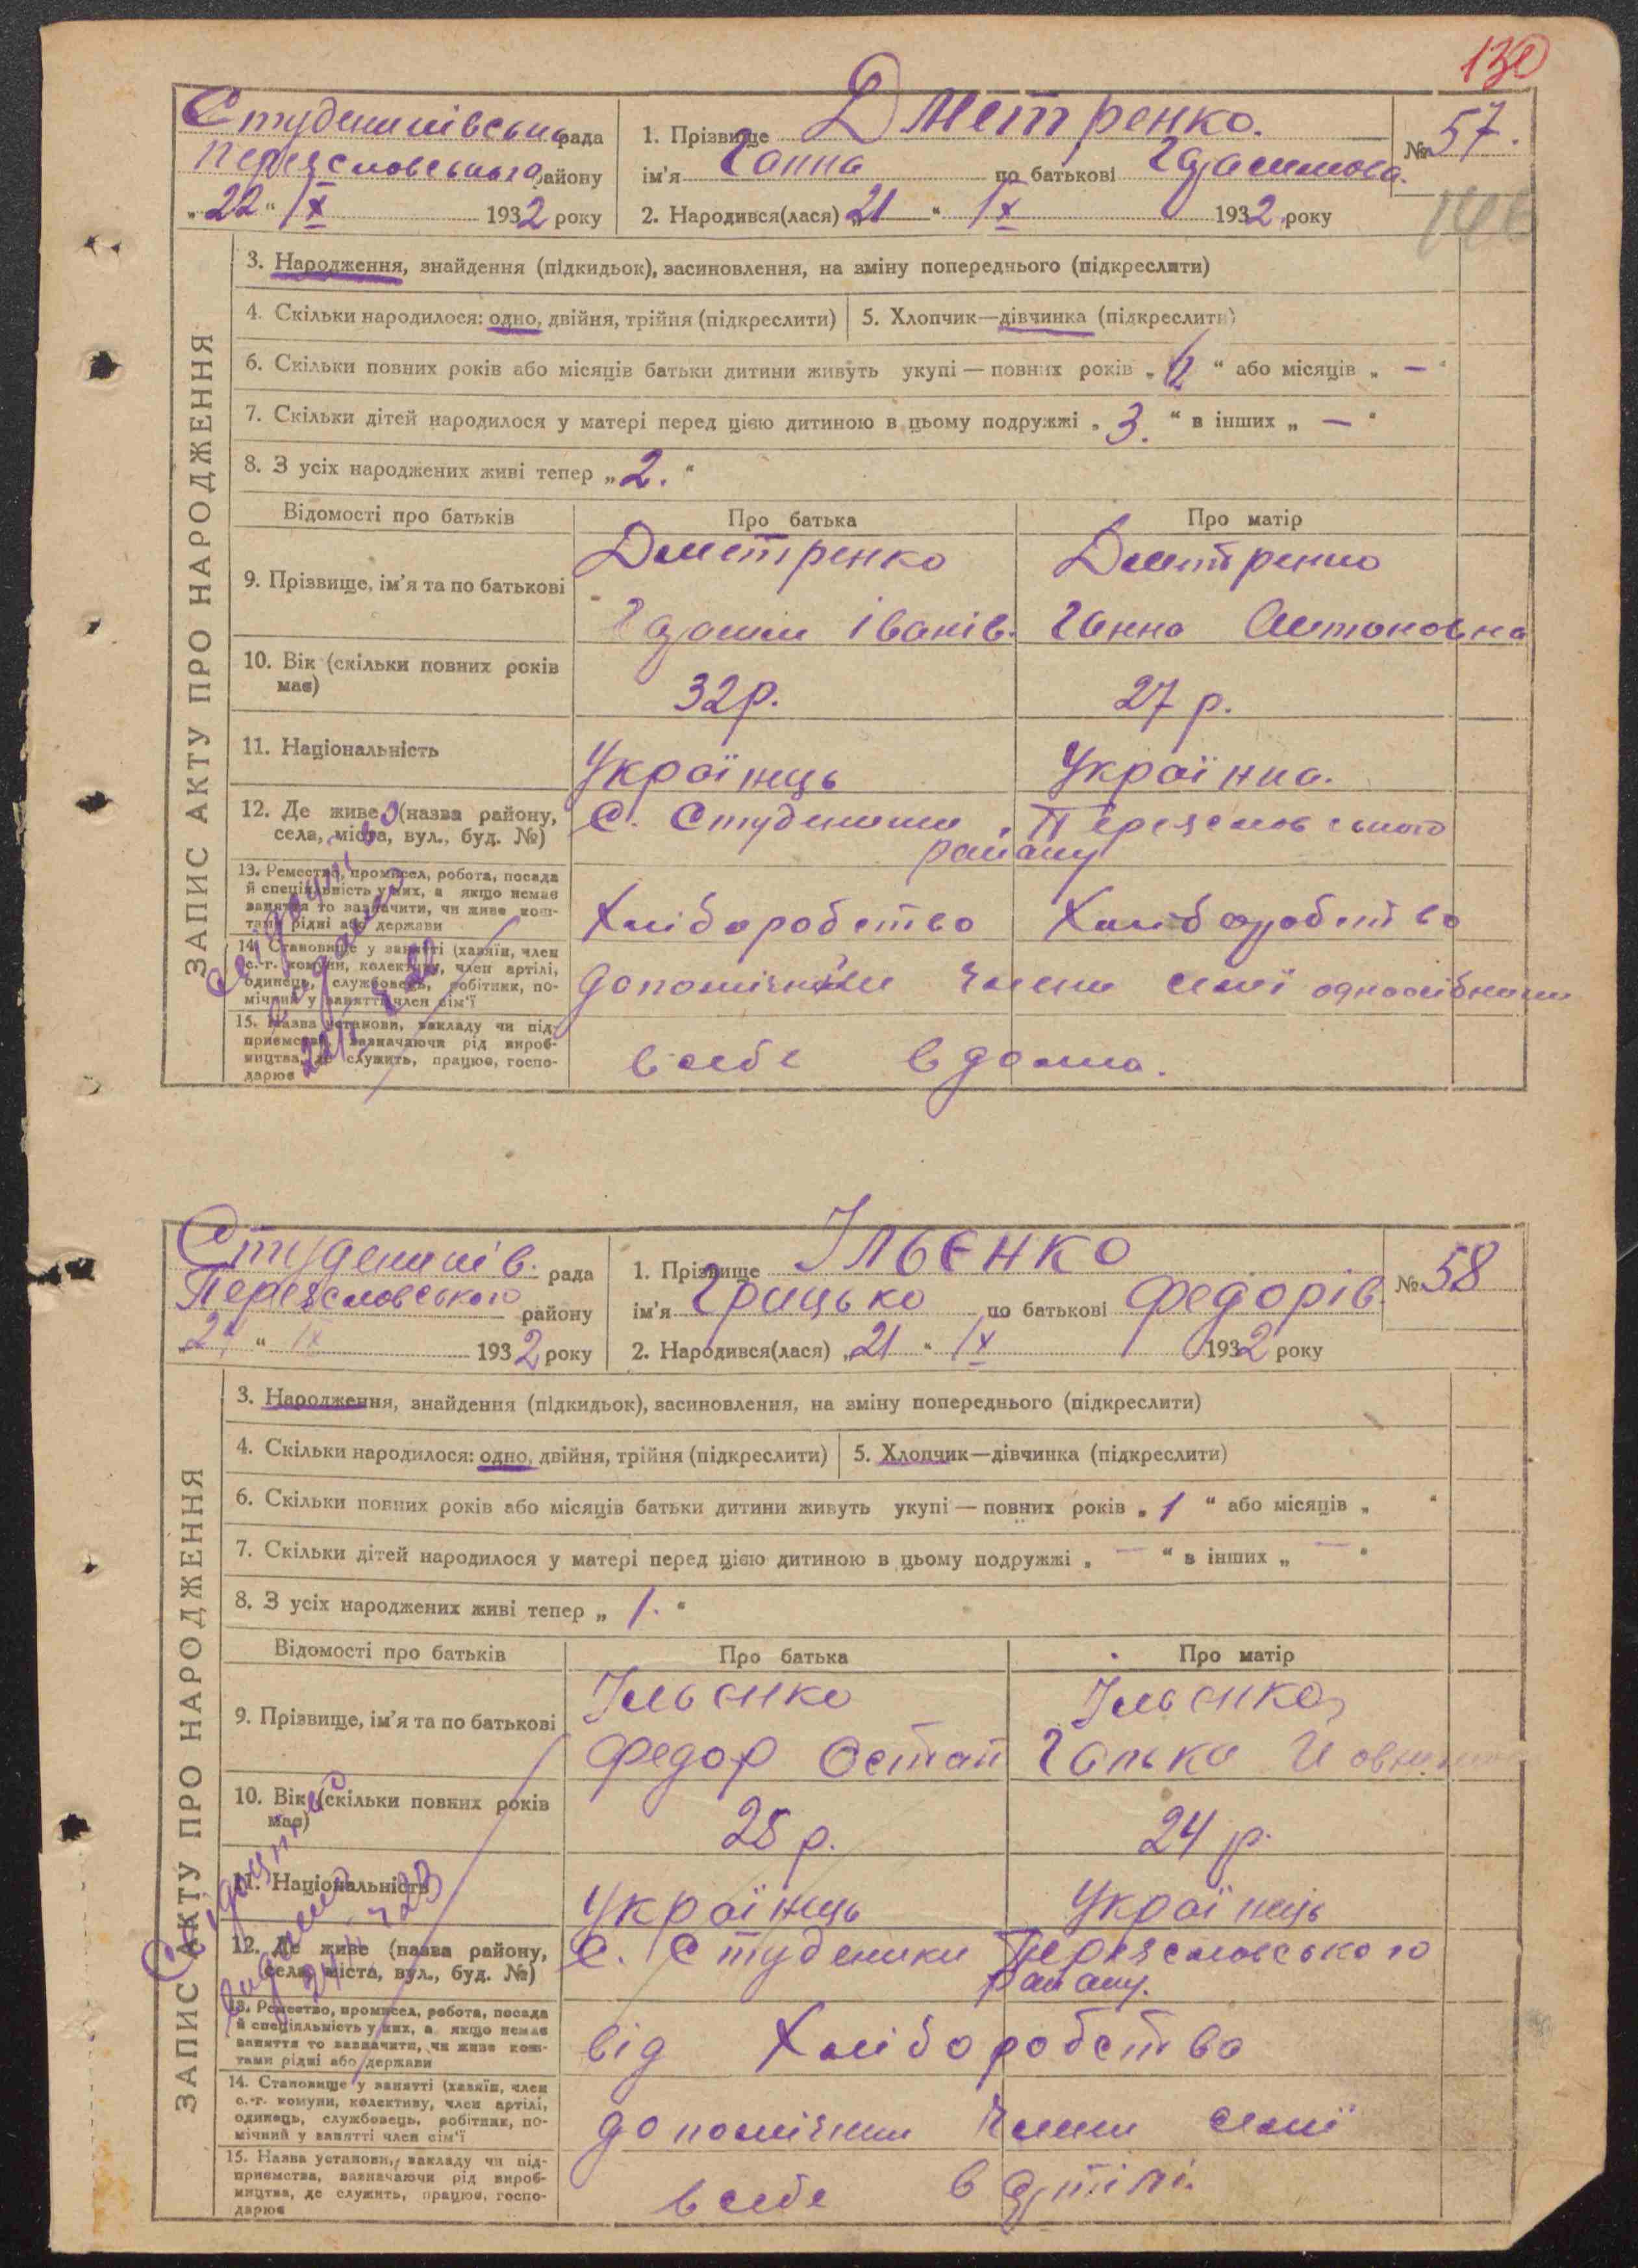 130
Студениківська рада
Переяславського району
„22“ IX 1932 року
1. Прізвище Дметренко.
ім'я Ганна по батькові
2. Народився(лася) „21“ IX 1932 року
№ 57.
146
ЗАПИС АКТУ ПРО НАРОДЖЕННЯ
3. Народження, знайдення (підкидьок), засиновлення, на зміну попереднього (підкреслити)
4. Скільки народилося: одно, двійня, трійня (підкреслити)
5. Хлопчик—дівчинка (підкреслити)
6. Скільки повних років або місяців батьки дитини живуть укупі — повних років „ “ або місяців „ — “
7. Скільки дітей народилося у матері перед цією дитиною в цьому подружжі „ 3. “ в інших „ — “
8. З усіх народжених живі тепер „ 2. “
Відомості про батьків
Про батька
Про матір
9. Прізвище, ім'я та по батькові
Дметренко
Іванів.
Дметренко
Ганна Антоновна
10. Вік (скільки повних років має)
32 р.
27 р.
11. Національність
Українець
Українка.
12. Де живе (назва району, села, міста, вул., буд. №)
С. Студеники, Переяславського
району
13. Ремество, промисел, робота, посада
й спеціяльність у них, а якщо немає
заняття то зазначити, чи живе кош-
тами рідні або держави
Хліборобство
Хліборобство
14. Становище у занятті (хазяїн, член
с.-г. комуни, колективу, член артілі,
одинець, службовець, робітник, по-
мічний у занятті член сім'ї
допомічний член семї
15. Назва установи, закладу чи під-
приємства, зазначаючи рід вироб-
ництва, де служить, працює, госпо-
дарює
в себе в дома.
Студеників. рада
Переяславського району
1932 року
1. Прізвище Ільєнко
ім'я Грицько по батькові Федорів
2. Народився(лася) „21“ IX 1932 року
№ 58
ЗАПИС АКТУ ПРО НАРОДЖЕННЯ
3. Народження, знайдення (підкидьок), засиновлення, на зміну попереднього (підкреслити)
4. Скільки народилося: одно, двійня, трійня (підкреслити)
5. Хлопчик—дівчинка (підкреслити)
6. Скільки повних років або місяців батьки дитини живуть укупі — повних років „ 1 “ або місяців „ “
7. Скільки дітей народилося у матері перед цією дитиною в цьому подружжі „ — “ в інших „ — “
8. З усіх народжених живі тепер „ 1. “
Відомості про батьків
Про батька
Про матір
9. Прізвище, ім'я та по батькові
Ільєнко
Федор Остап
Ільєнко
Галька
10. Вік (скільки повних років має)
25 р.
24 р.
11. Національність
Українець
Українець
12. Де живе (назва району, села, міста, вул., буд. №)
С. Студеники Переяславського
району.
13. Ремество, промисел, робота, посада
й спеціяльність у них, а якщо немає
заняття то зазначити, чи живе кош-
тами рідні або держави
від Хліборобства
14. Становище у занятті (хазяїн, член
с.-г. комуни, колективу, член артілі,
одинець, службовець, робітник, по-
мічний у занятті член сім'ї
допомічний член семї
15. Назва установи, закладу чи під-
приємства, зазначаючи рід вироб-
ництва, де служить, працює, госпо-
дарює
в себе в артілі.